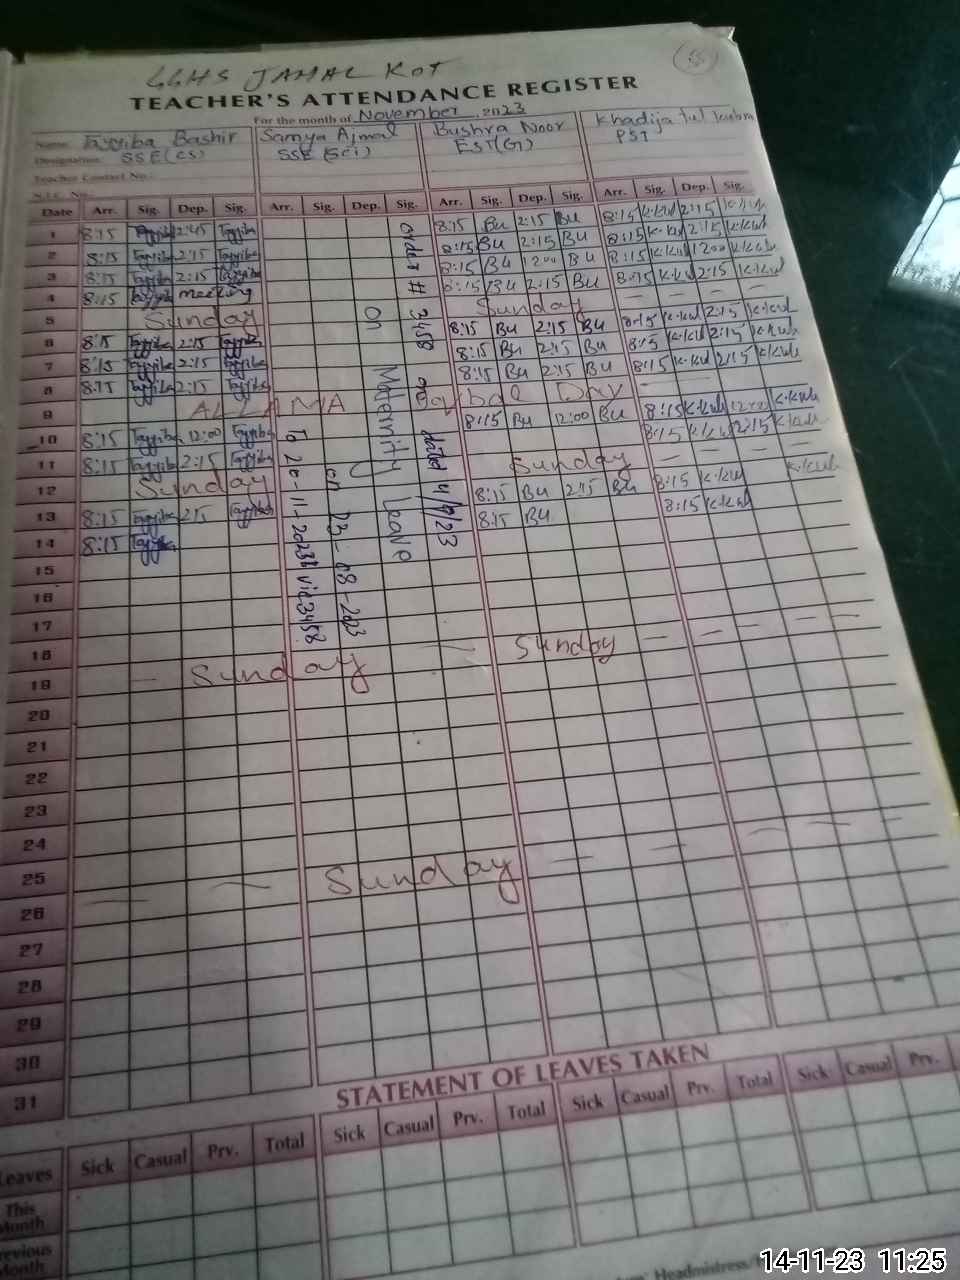 GGHS JAHAL KOT
55
TEACHER'S ATTENDANCE REGISTER
For the month of November 2023
Name: Tayyiba Bashir Samya Ajmal Bushra Noor Khadija tul kubra
Designation: SSE(CS) SSE (Sci) EST(G) PST
Teacher Contact No.
N.I.C. No.
Date Arr. Sig. Dep. Sig. Arr. Sig. Dep. Sig. Arr. Sig. Dep. Sig. Arr. Sig. Dep. Sig.
1 8:15 Tayyiba 2:45 Tayyiba 8:15 Bu 2:15 Bu 8:15 k.kub 2:15 k.kub
2 8:15 Tayyiba 2:15 Tayyiba 8:15 Bu 2:15 Bu 8:15 k.kub 2:15 k.kub
3 8:15 Tayyiba 2:15 Tayyiba 8:15 Bu 12:00 Bu 8:15 k.kub 12:00 k.kub
4 8:15 Tayyiba meeting 8:15 Bu 2:15 Bu 8:15 k.kub 2:15 k.kub
5 Sunday Sunday
6 8:15 Tayyiba 2:15 Tayyiba 8:15 Bu 2:15 Bu 8:15 k.kub 2:15 k.kub
7 8:15 Tayyiba 2:15 Tayyiba 8:15 Bu 2:15 Bu 8:15 k.kub 2:15 k.kub
8 8:15 Tayyiba 2:15 Tayyiba 8:15 Bu 2:15 Bu 8:15 k.kub 2:15 k.kub
9 ALLAMA Iqbal Day
10 8:15 Tayyiba 12:00 Tayyiba 8:15 Bu 12:00 Bu 8:15 k.kub 12:00 k.kub
11 8:15 Tayyiba 2:15 Tayyiba 8:15 k.kub 2:15 k.kub
12 Sunday Sunday
13 8:15 Tayyiba 2:15 Tayyiba 8:15 Bu 2:15 Bu 8:15 k.kub k.kub
14 8:15 Tayyiba 8:15 Bu 8:15 k.kub
order # 3458 dated 4/9/23
on Maternity Leave
on 23-08-2023
To 20-11-2023 vide 3458
15
16
17
18
19 Sunday Sunday
20
21
22
23
24
25
26 Sunday
27
28
29
30
31
STATEMENT OF LEAVES TAKEN
Leaves Sick Casual Prv. Total Sick Casual Prv. Total Sick Casual Prv. Total Sick Casual Prv.
This Month
Previous Month
Headmistress/
14-11-23 11:25